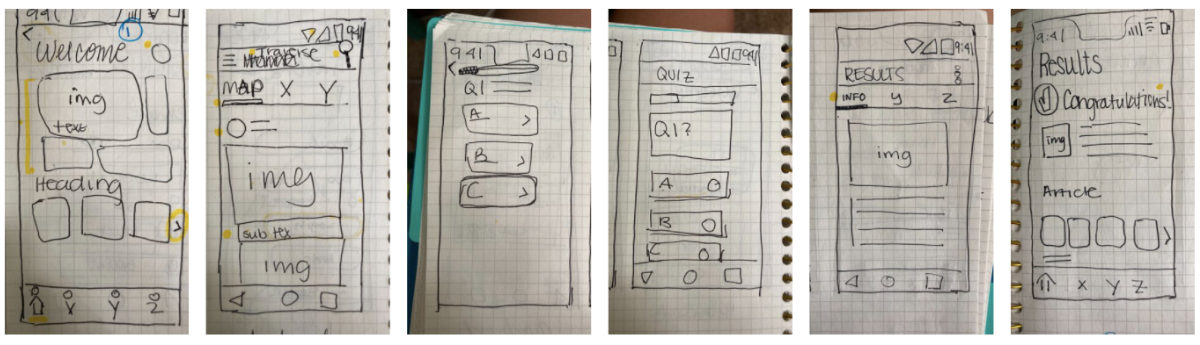 9:41
1
Welcome
img
text
Heading
X
Y
Z
9:41
MAP X Y
img
sub tex
img
9:41
Q1
A
B
C
9:41
QUIZ
Q1?
A
B
C
9:41
RESULTS
INFO Y Z
img
9:41
Results
Congratulations!
img
Article
X Y Z